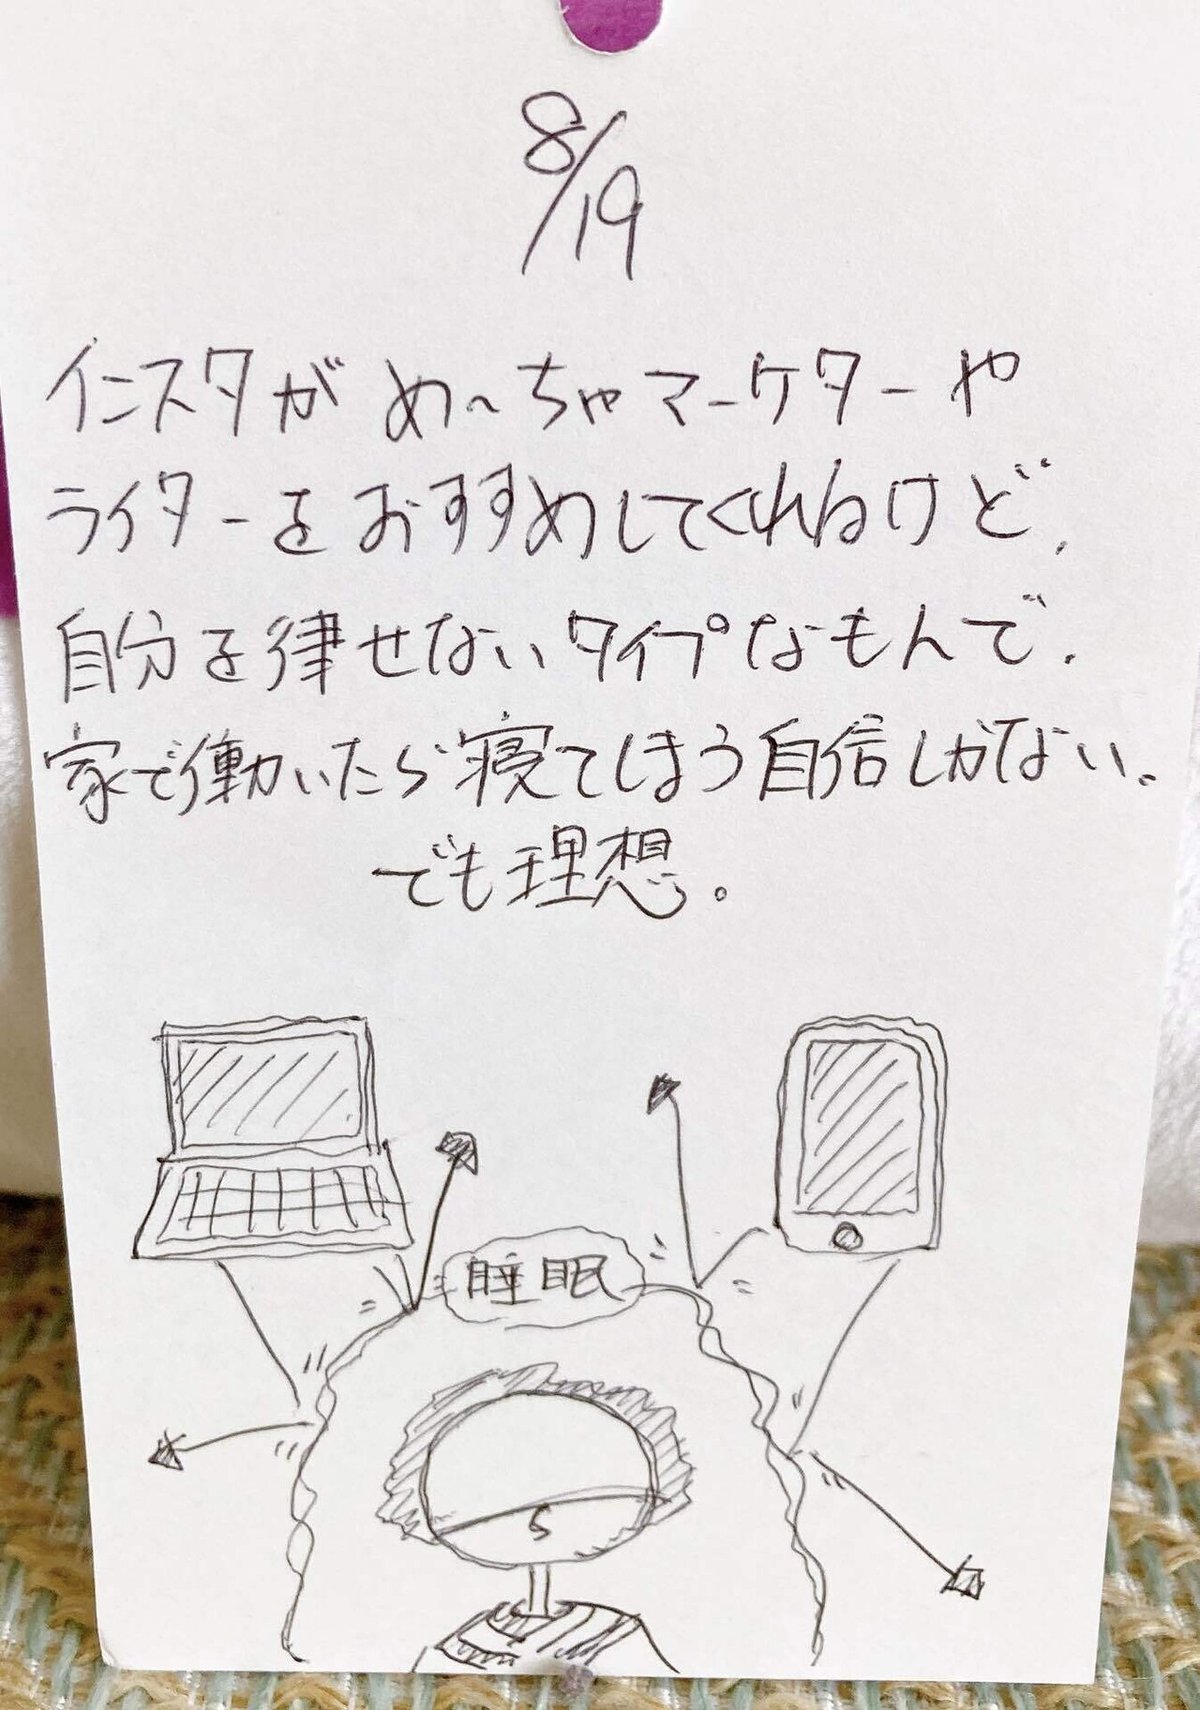 8/19
インスタがめ〜ちゃマーケターや
ライターをおすすめしてくれるけど、
自分を律せないタイプなもんで、
家で働いたら寝てしまう自信しかない。
でも理想。
睡眠